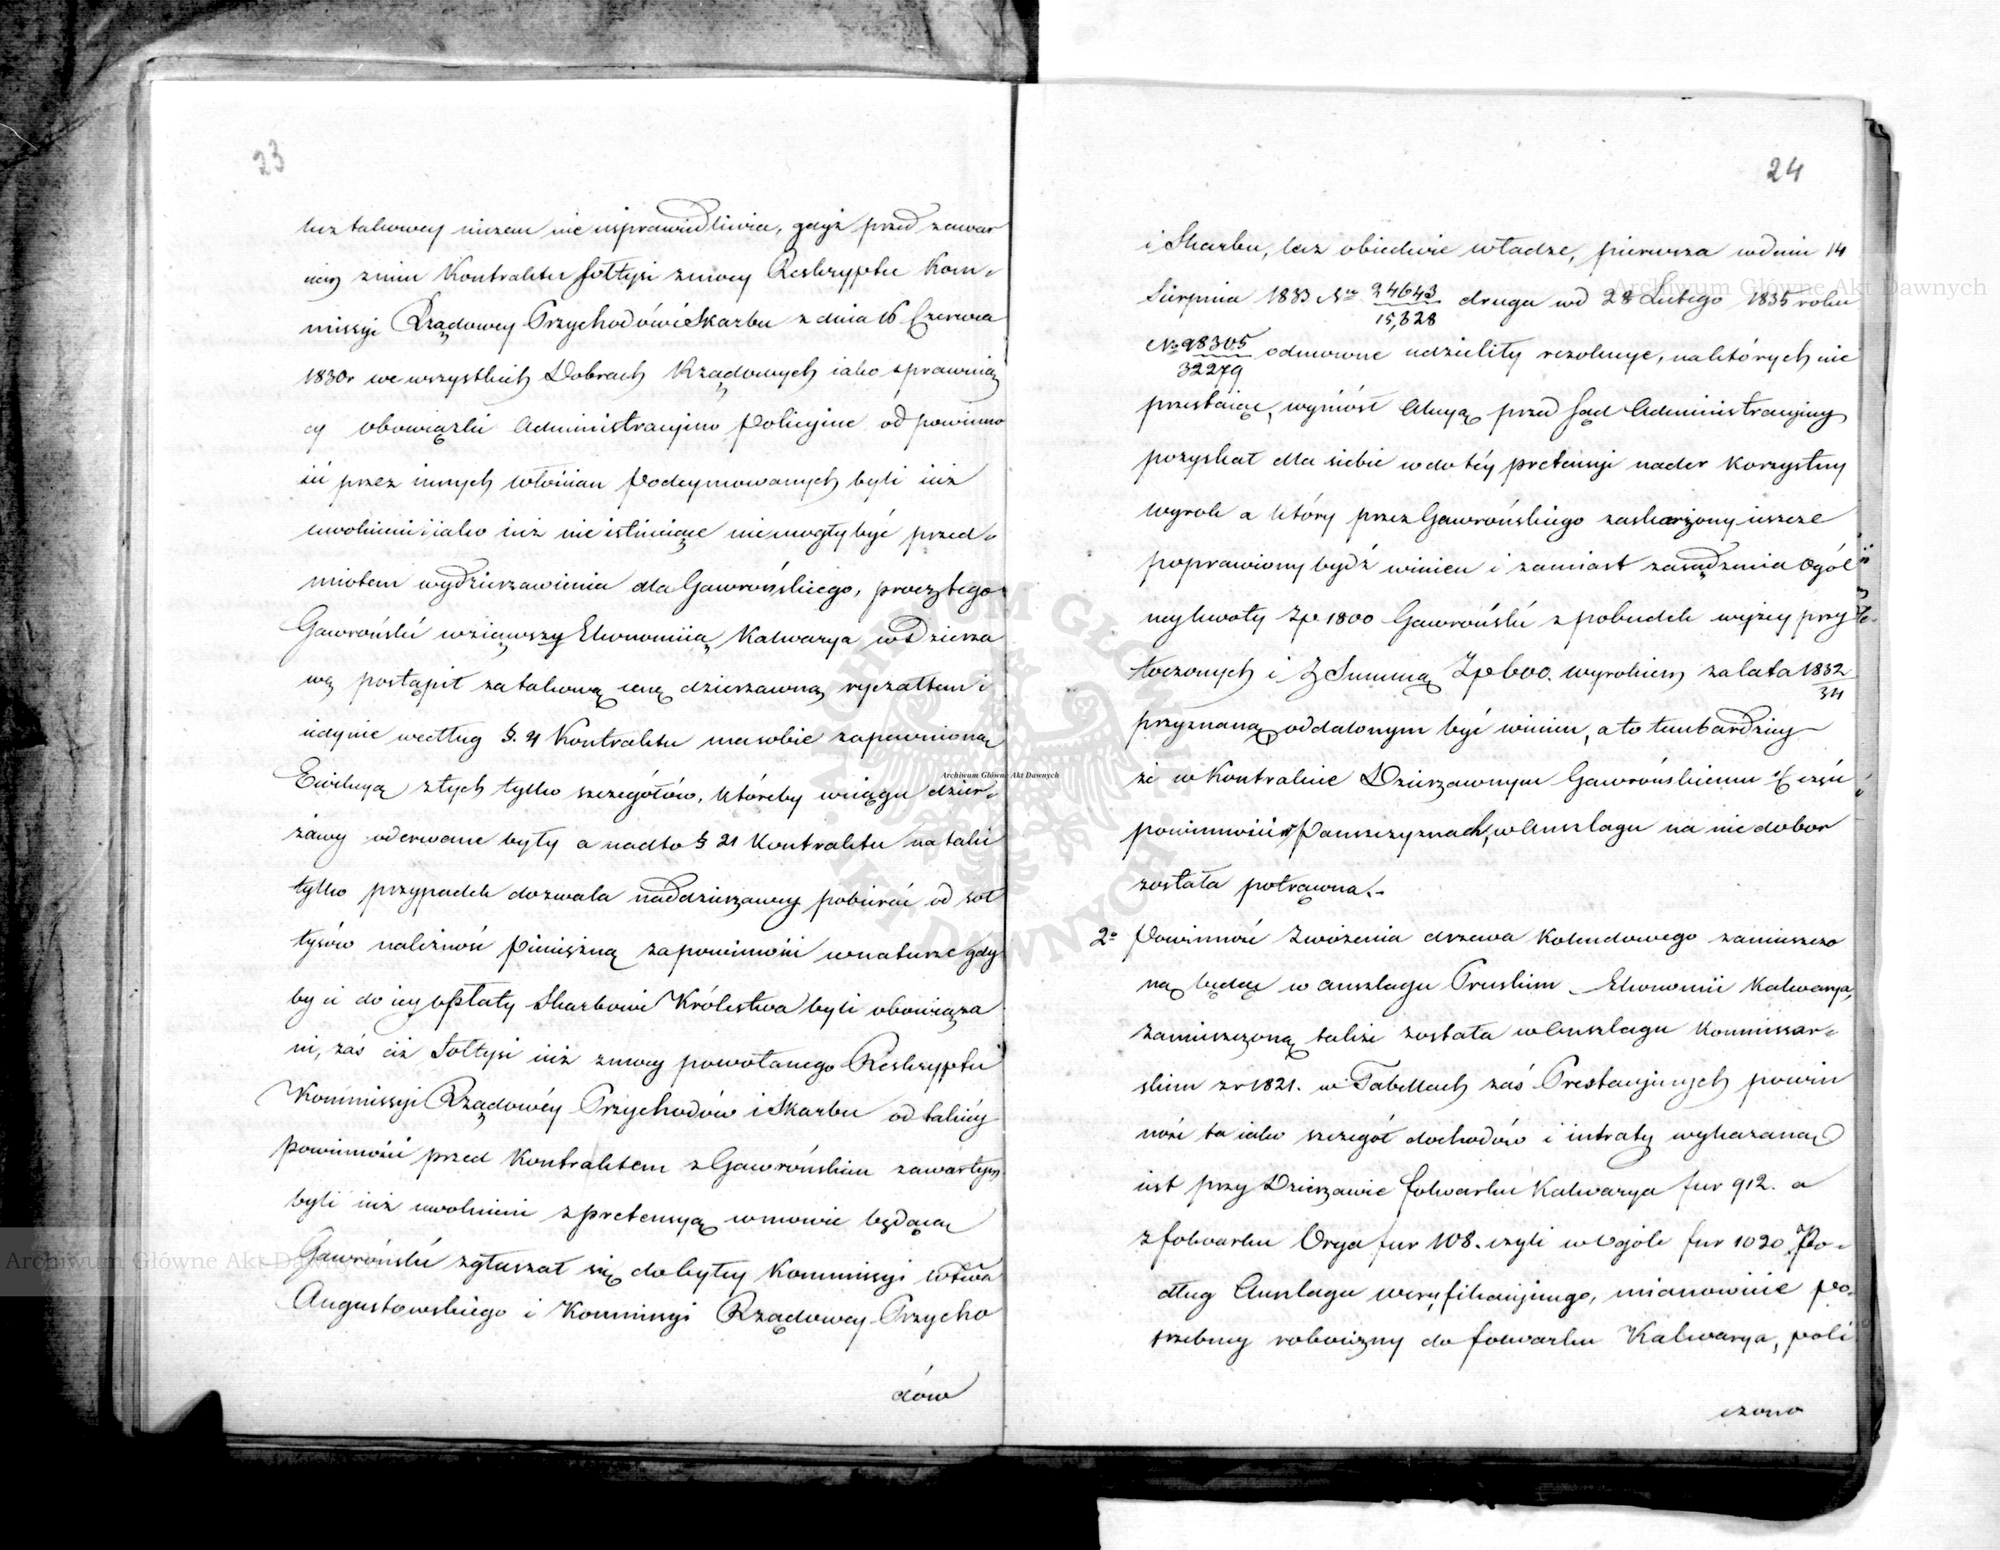 23
lecz takowey niczem nie usprawiedliwia, gdyż przed zawar
ciem z nim Kontraktu Sołtysi z mocy Reskryptu Kom-
missyi Rządowey Przychodów i Skarbu z dnia 16 Czerwca
1830r we wszystkich Dobrach Rządowych iako sprawuią
cy obowiązki Administracyino Policyine od powinno
ści przez innych włościan Podeymowanych byli iuż
uwolnieni i iako iuż nie istnieiące nie mogły być przed-
miotem wydzierzawienia dla Gawrońskiego, procz tego
Gawroński wziąwszy Ekonomiią Kalwarya w Dzierza
wę postąpił za takową cenę dzierzawną ryczałtem i
iedynie według §. 21 Kontraktu ma sobie zapewnioną
Ewikcyą z tych tylko szczegółów, któreby w ciągu dzier-
żawy oderwane były a nadto § 21 Kontraktu na taki
tylko przypadek dozwala naddzierzawcy pobierać od soł
tysów należność Pieniężną za powinności w naturze gdy
by ci do iey opłaty Skarbowi Królestwa byli obowiąza
ni, zaś ciż Sołtysi iuż z mocy powołanego Reskryptu
Kommissyi Rządowéy Przychodów i Skarbu od takiéy
powinności przed Kontraktem z Gawrońskim zawartym
byli iuż uwolnieni z pretensyą w mowie będącą
Gawroński zgłaszał się do byłey Kommissyi Wdztwa
Augustowskiego i Kommissyi Rządowey Przycho
dów
24
i Skarbu, lecz obiedwie władze, pierwsza w dniu 14
Sierpnia 1833 Nro 24643/15,328 druga wd 28 Lutego 1835 roku
No 98305/32279 odmowne udzieliły rezolucye, na których nie
przestaiąc, wyniósł Akcyą przed Sąd Administracyiny
pozyskał dla siebie w do téy pretensyi nader korzystny
wyrok a który przez Gawrońskiego zaskarżony ieszcze
poprawiony bydź winien i zamiast zasądzenia Ogól
ney kwoty Złp 1800 Gawroński z pobudek wyżey przy
toczonych i z Summą Złp 600. wyrokiem za lata 1832/34
przyznaną oddalonym być winien, a to tem bardziey
że w Kontrakcie Dzierzawnym Gawrońskiemu część
powinności Panszczyznach, w Anszlagu na niedobor
została potrącona.
2o Powinność Zwożenia drzewa Kolendowego zamieszczo
ną będąc w anszlagu Pruskim Ekonomii Kalwarya,
zamieszczoną także została w Anszlagu Kommissar-
skim z r 1821. w Tabellach zaś Prestacyinych powin
ność ta iako szczegół dochodów i intraty wykazaną
iest przy Dzierzawie folwarku Kalwarya fur 912. a
z folwarku Orya fur 108. czyli w Ogóle fur 1020 Po-
dług Anszlagu weryfikacyinego, mianowicie po-
trzebney robocizny do folwarku Kalwarya, poli
czono
Archiwum Główne Akt Dawnych
Archiwum Główne Akt Dawnych
Archiwum Główne Akt Dawnych
ARCHIWUM GŁÓWNE AKT DAWNYCH